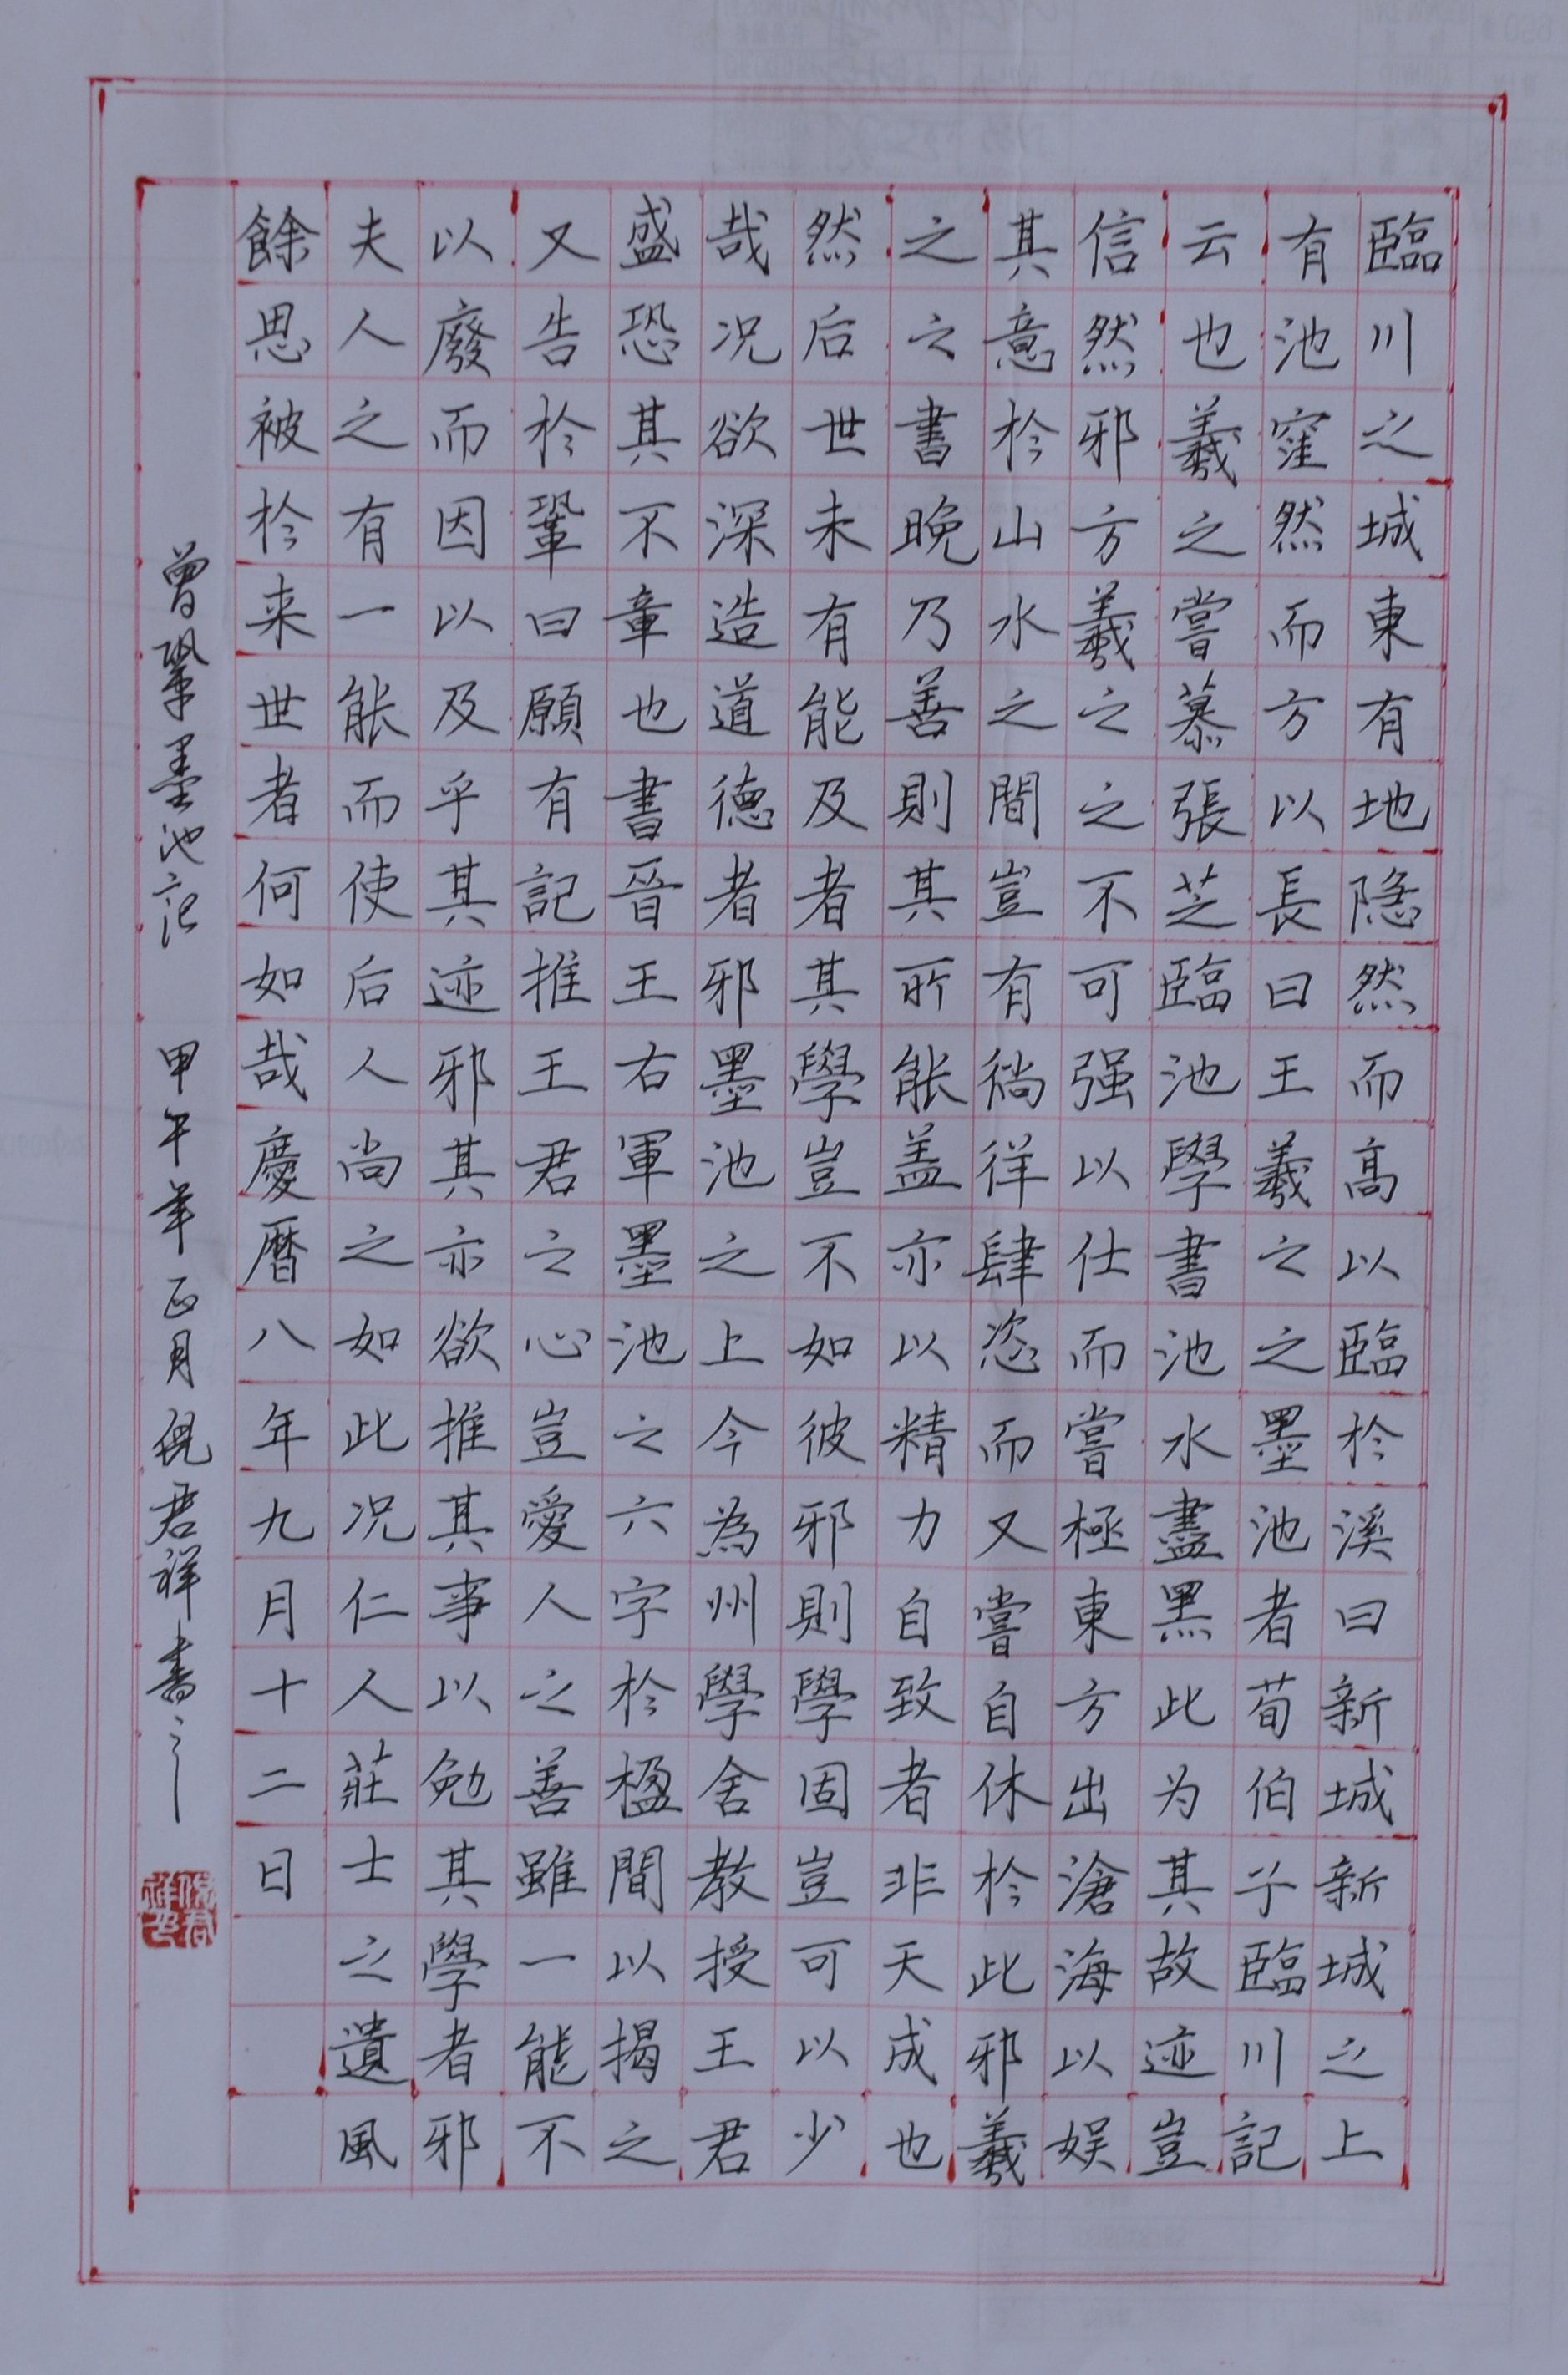 臨川之城東有地隐然而高以臨於溪曰新城新城之上
有池窪然而方以長曰王羲之之墨池者荀伯子臨川記
云也羲之嘗慕張芝臨池學書池水盡黑此为其故迹豈
信然邪方羲之之不可强以仕而嘗極東方出滄海以娱
其意於山水之間豈有徜徉肆恣而又嘗自休於此邪羲
之之書晚乃善則其所能盖亦以精力自致者非天成也
然后世未有能及者其學豈不如彼邪則學固豈可以少
哉况欲深造道德者邪墨池之上今為州學舍教授王君
盛恐其不章也書晉王右軍墨池之六字於楹間以揭之
又告於鞏曰願有記推王君之心豈愛人之善雖一能不
以廢而因以及乎其迹邪其亦欲推其事以勉其學者邪
夫人之有一能而使后人尚之如此况仁人莊士之遺風
餘思被於来世者何如哉慶暦八年九月十二日
曾鞏墨池记 甲午年正月倪君祥書之
倪君祥印